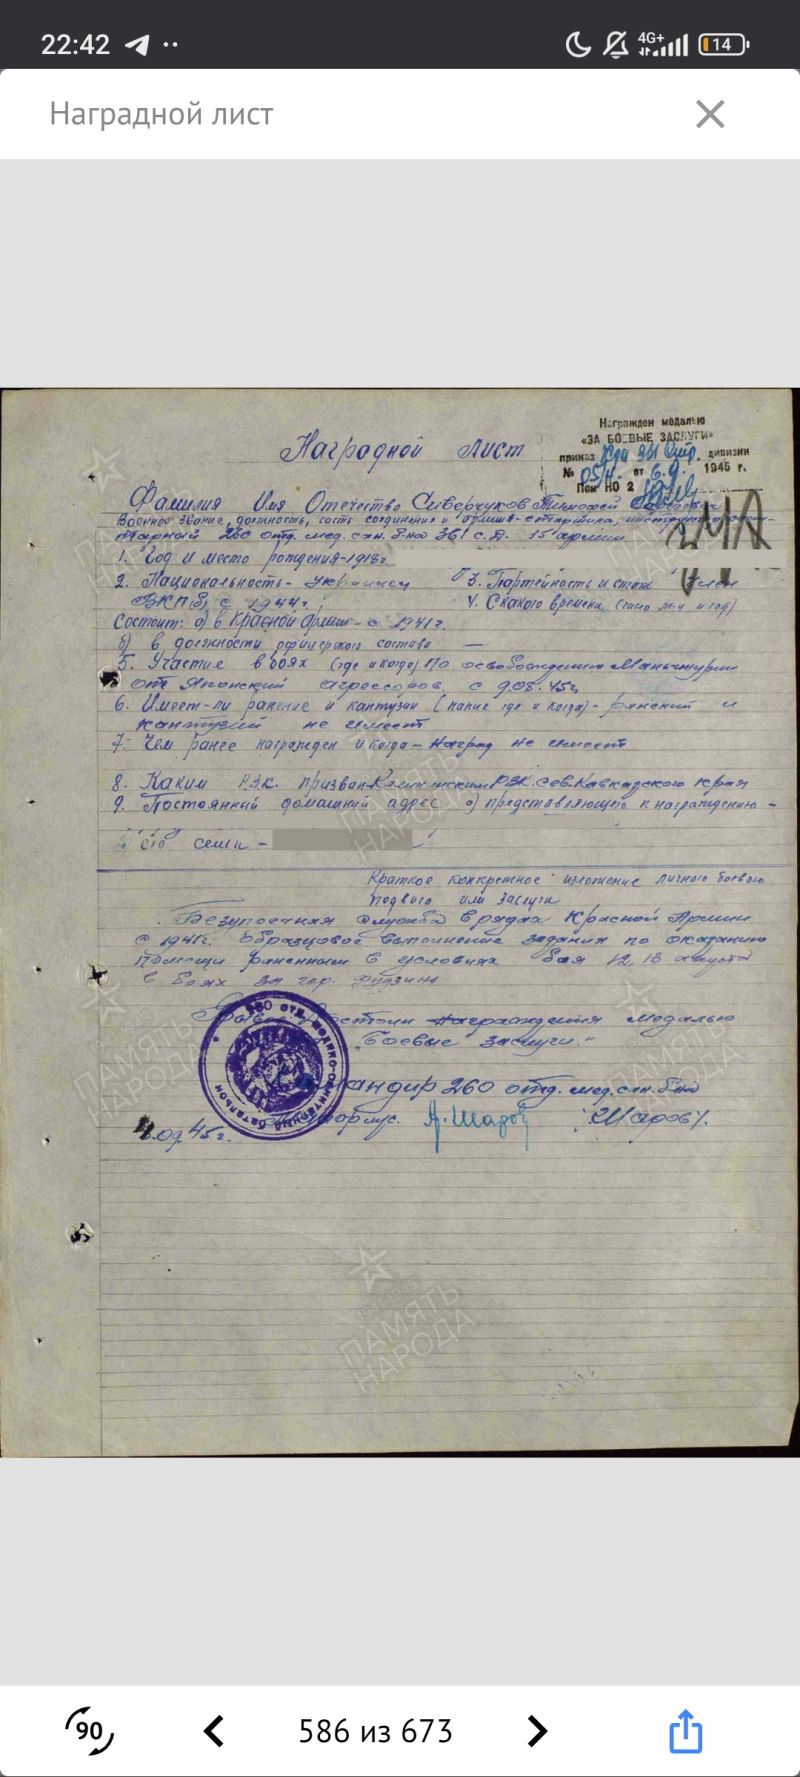 22:42
4G+
14
Наградной лист
Награжден медалью
«ЗА БОЕВЫЕ ЗАСЛУГИ»
приказ дивизии
№ 05/н от 6.9. 1945 г.
Пом НО 2
Наградной лист
Фамилия Имя Отчество Сиверчуков Тимофей
Военное звание, должность, часть соединения и армия - старшина,
260 отд. мед. сан. б-на 361 с.д. 15 армии
1. Год и место рождения - 1918 г.
2. Национальность - украинец 3. Партейность и стаж член
ВКПб, с 1944 г. 4. С какого времени
Состоит: а) в Красной Армии - с 1941 г.
б) в должности офицерского состава —
5. Участие в боях (где и когда) По освобождению Маньчжурии
от Японский агрессоров с 9.08.45 г.
6. Имеет-ли ранение и кантузии (какие где и когда) - ранений и
кантузий не имеет
7. Чем ранее награжден и когда - Наград не имеет
8. Каким Р.В.К. призван РВК Сев. Кавказского края
9. Постоянный домашний адрес а) представляющего к награждению -
б) его семьи -
Краткое конкретное изложение личного боевого
подвига или заслуги
Безупречная служба в рядах Красной Армии
с 1941 г. Образцовое выполнение задания по оказанию
помощи раненным в условиях боя 12, 13 августа
в боях за гор. Фугзин
достоин награждения медалью
"Боевые заслуги."
Командир 260 отд. мед. сан. б-на
А. Шаров /Шаров/.
09 45 г.
260 отд. медико-санитарный батальон
ПАМЯТЬ
НАРОДА
ПАМЯТЬ
НАРОДА
ПАМЯТЬ
НАРОДА
ПАМЯТЬ
НАРОДА
90
586 из 673